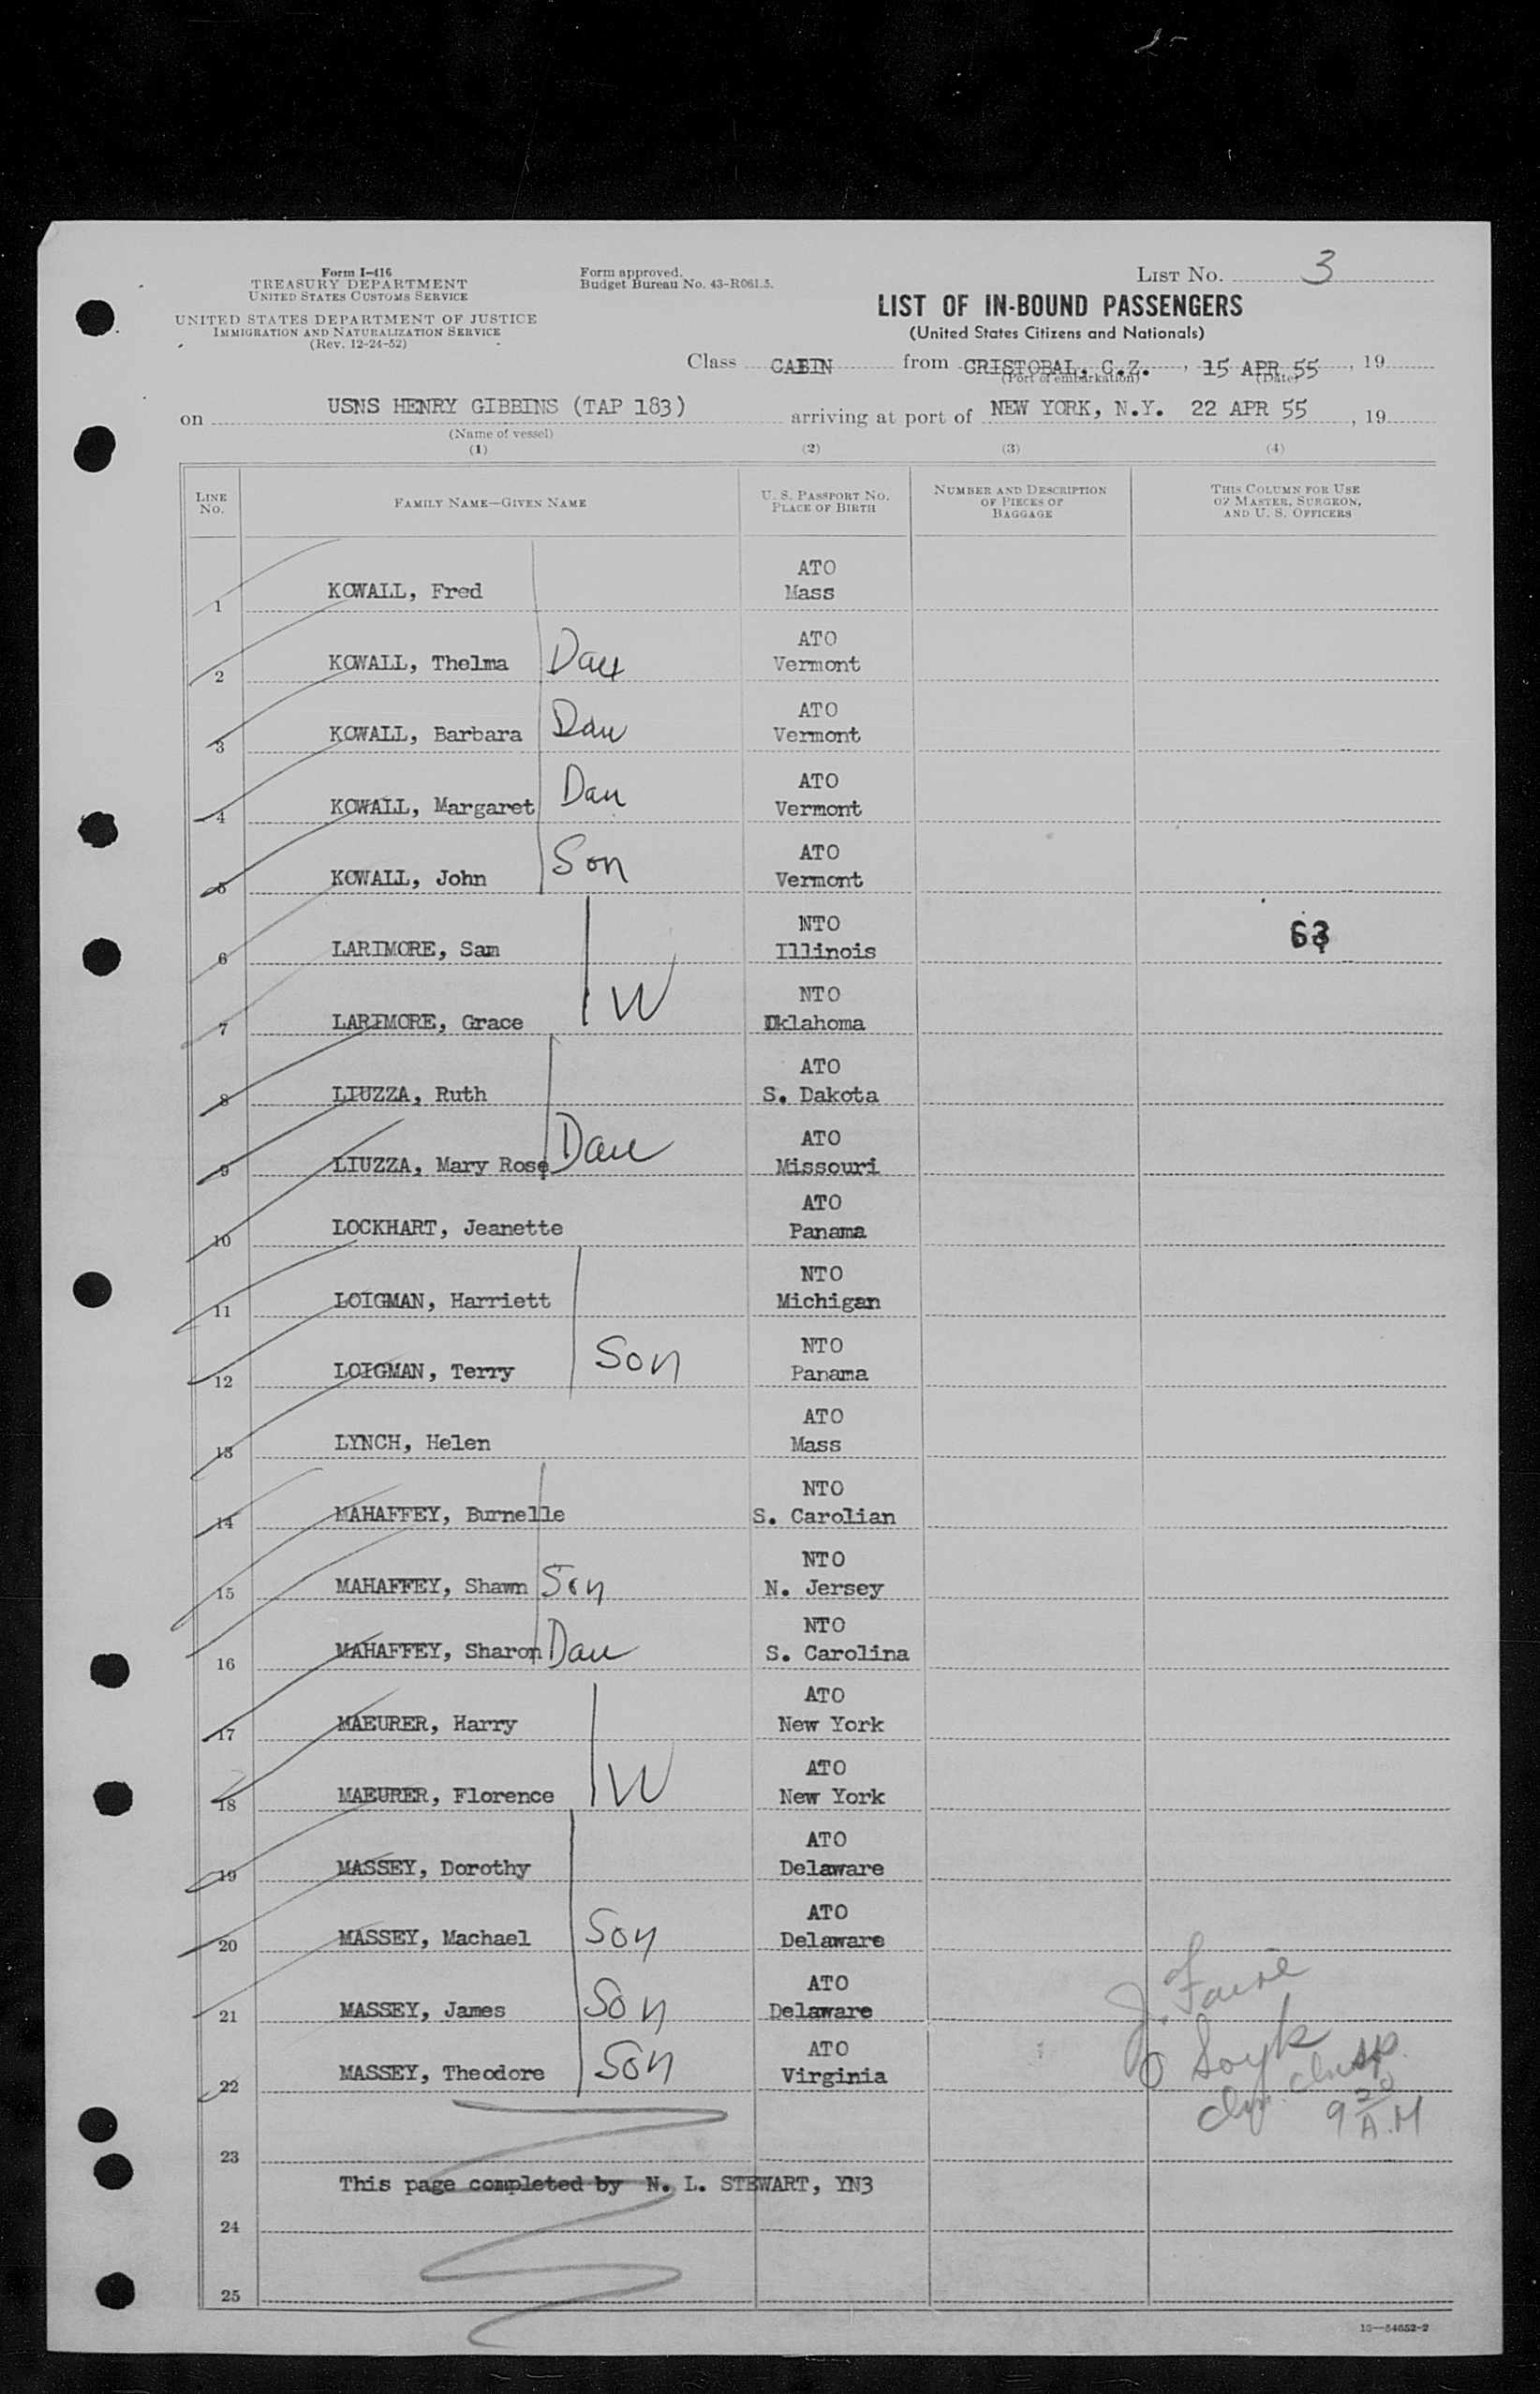 Form I-416
TREASURY DEPARTMENT
UNITED STATES CUSTOMS SERVICE
UNITED STATES DEPARTMENT OF JUSTICE
IMMIGRATION AND NATURALIZATION SERVICE
(Rev. 12-24-52)
Form approved.
Budget Bureau No. 43-R061.5.
LIST No. 3
LIST OF IN-BOUND PASSENGERS
(United States Citizens and Nationals)
Class CABIN from CRISTOBAL, C.Z. , 15 APR 55 , 19
(Port of embarkation) (Date)
on USNS HENRY GIBBINS (TAP 183) arriving at port of NEW YORK, N.Y. 22 APR 55 , 19
(Name of vessel)
(1) (2) (3) (4)
LINE No. FAMILY NAME—GIVEN NAME U. S. PASSPORT NO. PLACE OF BIRTH NUMBER AND DESCRIPTION OF PIECES OF BAGGAGE THIS COLUMN FOR USE OF MASTER, SURGEON, AND U. S. OFFICERS
ATO
1 KOWALL, Fred Mass
ATO
2 KOWALL, Thelma Dau Vermont
ATO
3 KOWALL, Barbara Dau Vermont
ATO
4 KOWALL, Margaret Dau Vermont
ATO
5 KOWALL, John Son Vermont
NTO
6 LARIMORE, Sam Illinois 63
NTO
7 LARIMORE, Grace W Oklahoma
ATO
8 LIUZZA, Ruth S. Dakota
ATO
9 LIUZZA, Mary Rose Dau Missouri
ATO
10 LOCKHART, Jeanette Panama
NTO
11 LOIGMAN, Harriett Michigan
NTO
12 LOIGMAN, Terry Son Panama
ATO
13 LYNCH, Helen Mass
NTO
14 MAHAFFEY, Burnelle S. Carolian
NTO
15 MAHAFFEY, Shawn Son N. Jersey
NTO
16 MAHAFFEY, Sharon Dau S. Carolina
ATO
17 MAEURER, Harry New York
ATO
18 MAEURER, Florence W New York
ATO
19 MASSEY, Dorothy Delaware
ATO
20 MASSEY, Machael Son Delaware
ATO
21 MASSEY, James Son Delaware
ATO
22 MASSEY, Theodore Son Virginia
9 20 A.M
23
This page completed by N. L. STEWART, YN3
24
25
16—64652-2